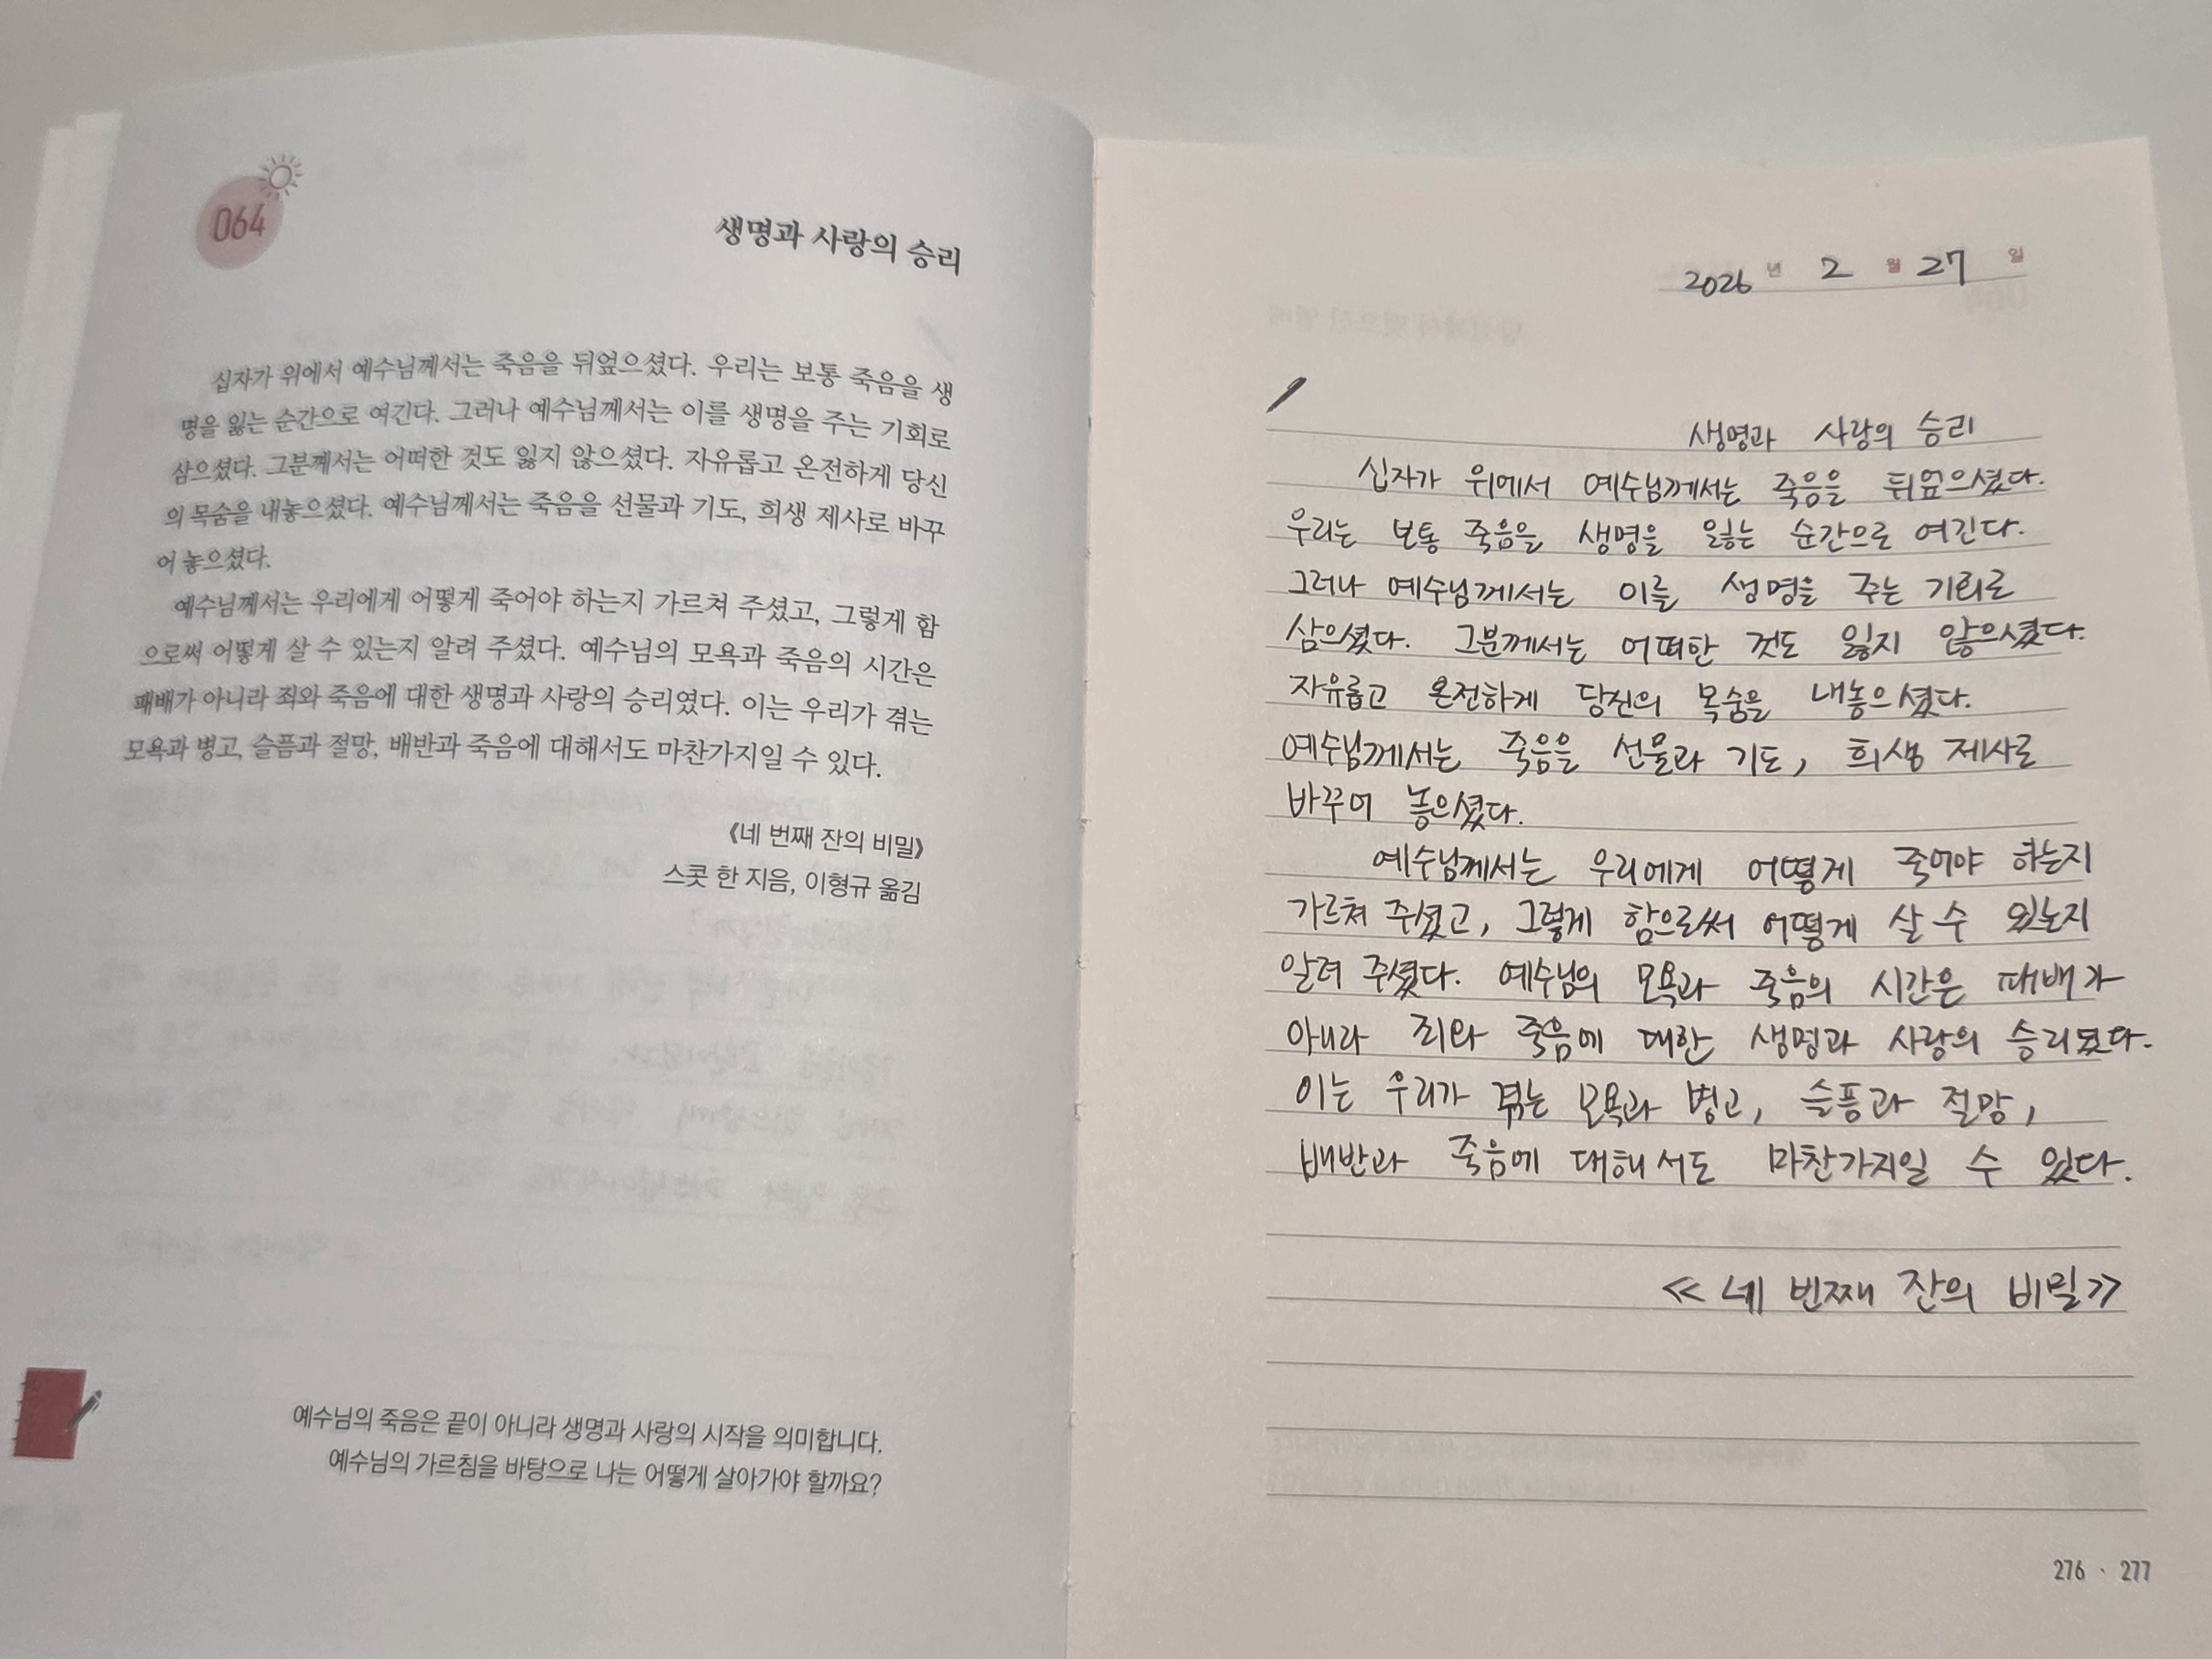 064
생명과 사랑의 승리
십자가 위에서 예수님께서는 죽음을 뒤엎으셨다. 우리는 보통 죽음을 생
명을 잃는 순간으로 여긴다. 그러나 예수님께서는 이를 생명을 주는 기회로
삼으셨다. 그분께서는 어떠한 것도 잃지 않으셨다. 자유롭고 온전하게 당신
의 목숨을 내놓으셨다. 예수님께서는 죽음을 선물과 기도, 희생 제사로 바꾸
어 놓으셨다.
예수님께서는 우리에게 어떻게 죽어야 하는지 가르쳐 주셨고, 그렇게 함
으로써 어떻게 살 수 있는지 알려 주셨다. 예수님의 모욕과 죽음의 시간은
패배가 아니라 죄와 죽음에 대한 생명과 사랑의 승리였다. 이는 우리가 겪는
모욕과 병고, 슬픔과 절망, 배반과 죽음에 대해서도 마찬가지일 수 있다.
《네 번째 잔의 비밀》
스콧 한 지음, 이형규 옮김
예수님의 죽음은 끝이 아니라 생명과 사랑의 시작을 의미합니다.
예수님의 가르침을 바탕으로 나는 어떻게 살아가야 할까요?
2026 년 2 월 27 일
생명과 사랑의 승리
십자가 위에서 예수님께서는 죽음을 뒤엎으셨다.
우리는 보통 죽음을 생명을 잃는 순간으로 여긴다.
그러나 예수님께서는 이를 생명을 주는 기회로
삼으셨다. 그분께서는 어떠한 것도 잃지 않으셨다.
자유롭고 온전하게 당신의 목숨을 내놓으셨다.
예수님께서는 죽음을 선물과 기도, 희생 제사로
바꾸어 놓으셨다.
예수님께서는 우리에게 어떻게 죽어야 하는지
가르쳐 주셨고, 그렇게 함으로써 어떻게 살 수 있는지
알려 주셨다. 예수님의 모욕과 죽음의 시간은 패배가
아니라 죄와 죽음에 대한 생명과 사랑의 승리였다.
이는 우리가 겪는 모욕과 병고, 슬픔과 절망,
배반과 죽음에 대해서도 마찬가지일 수 있다.
≪네 번째 잔의 비밀≫
276 · 277